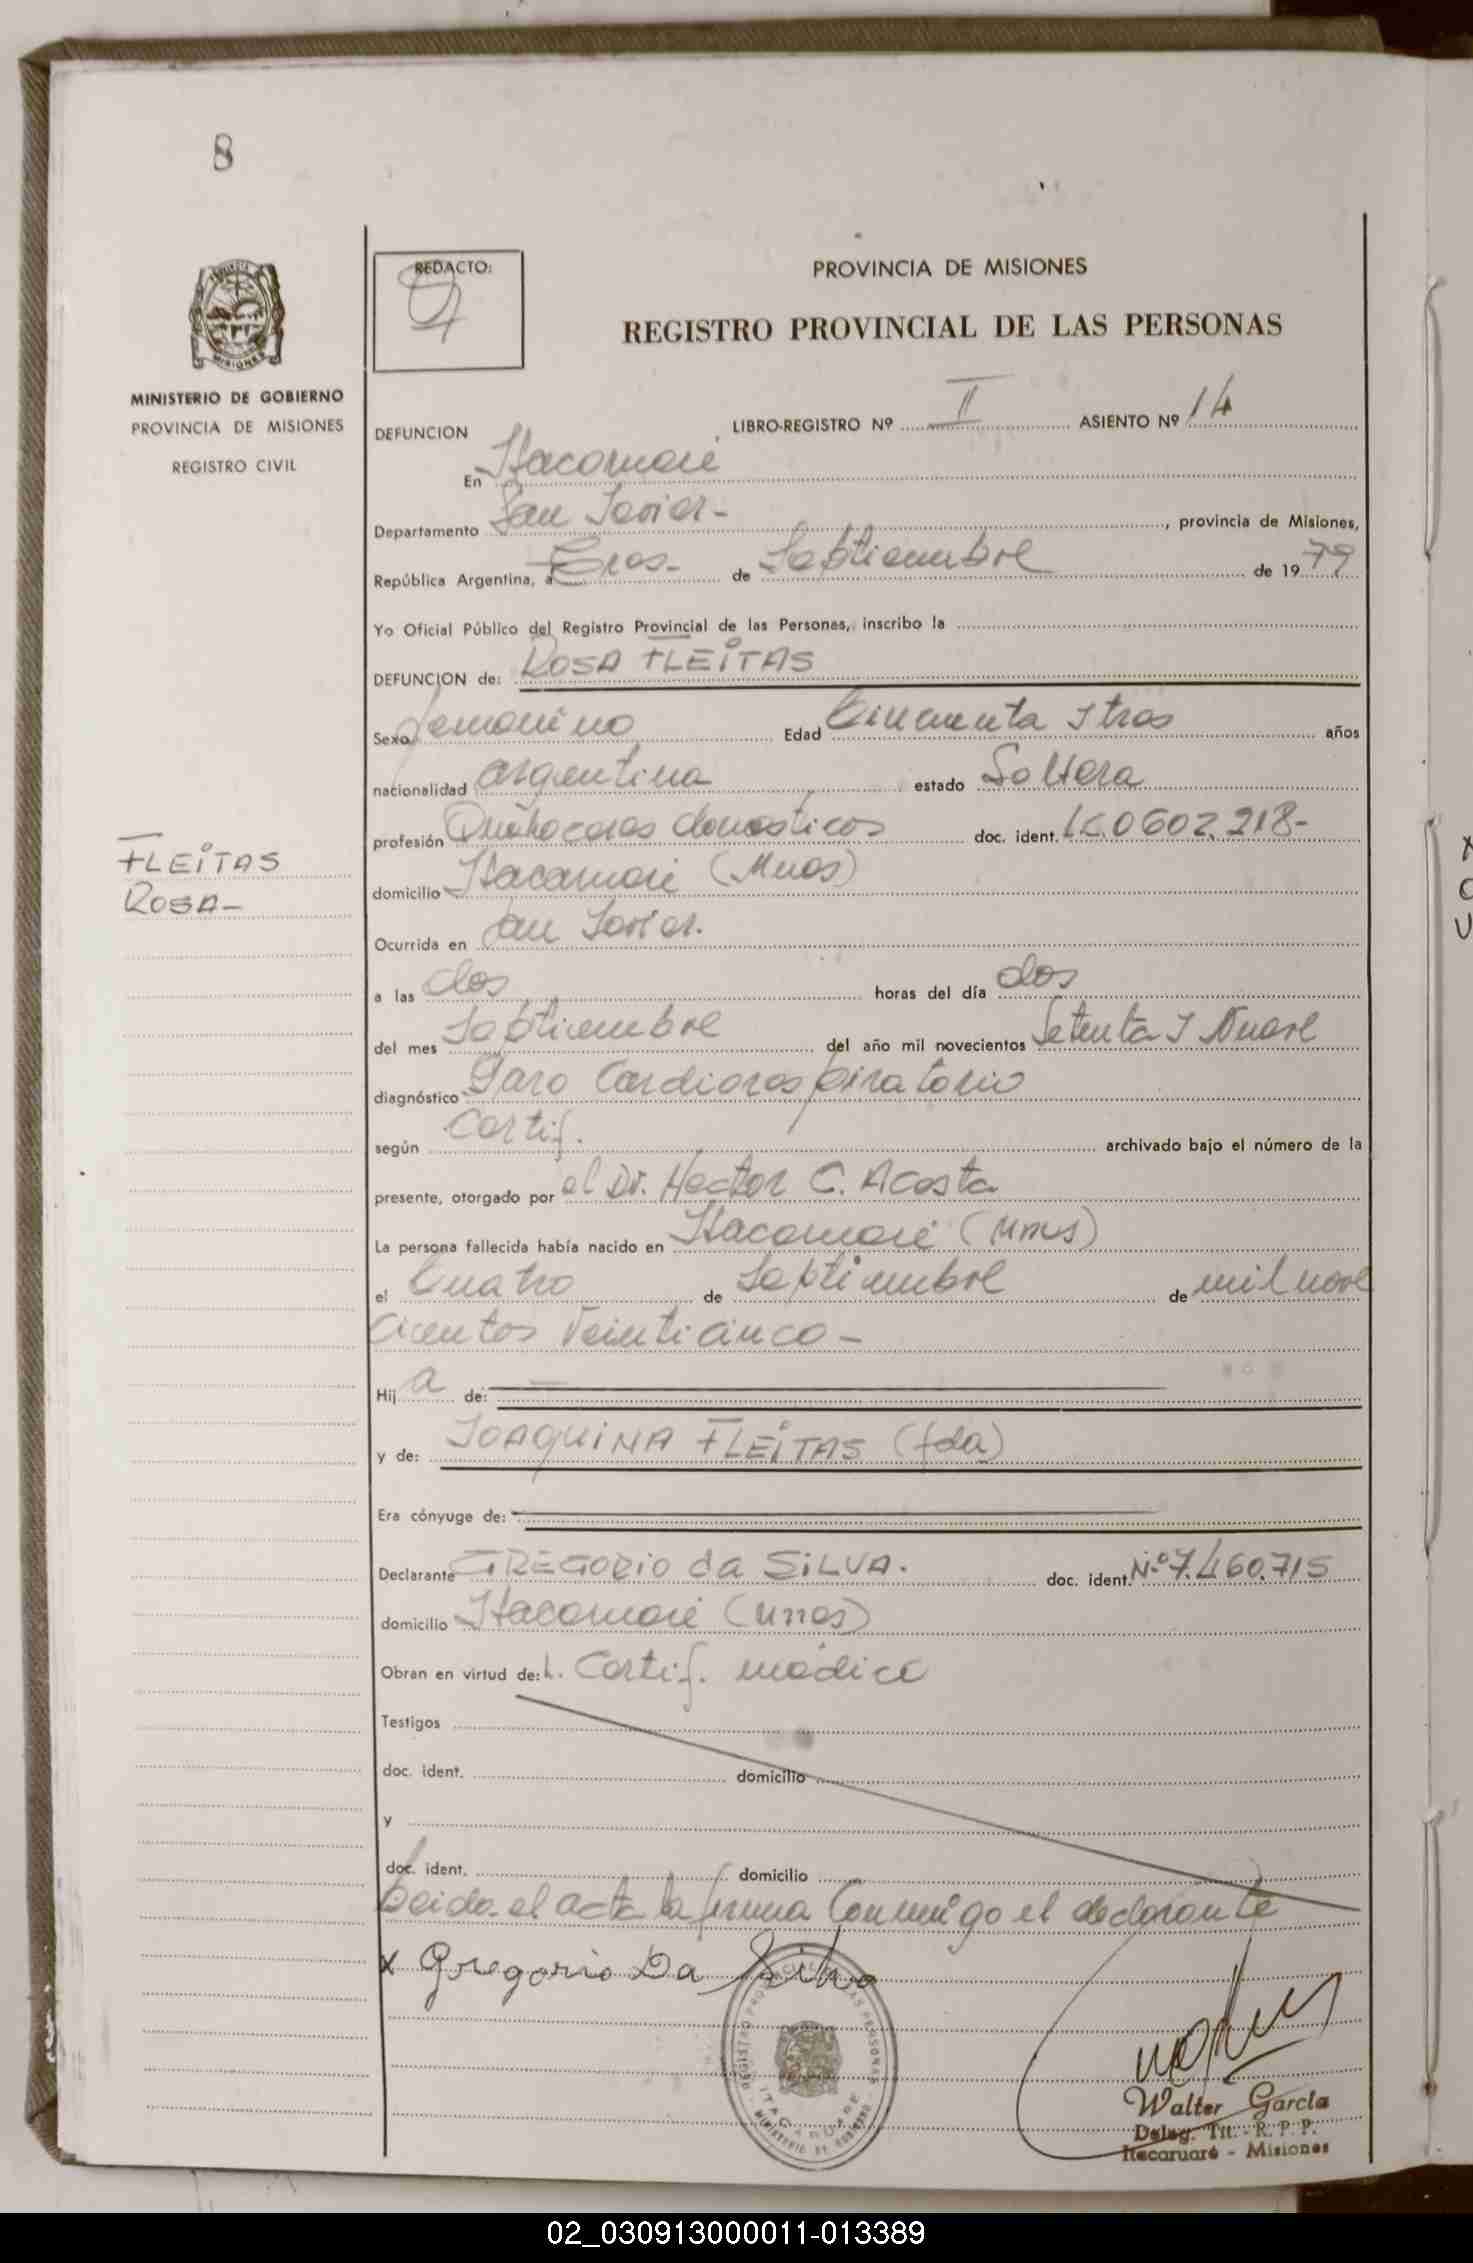 8
REDACTO:
PROVINCIA DE MISIONES
REGISTRO PROVINCIAL DE LAS PERSONAS
MINISTERIO DE GOBIERNO
PROVINCIA DE MISIONES
REGISTRO CIVIL
DEFUNCION LIBRO-REGISTRO Nº II ASIENTO Nº 14
En Itacaruaré
Departamento San Javier - , provincia de Misiones,
República Argentina, a Tres - de Septiembre de 1979
Yo Oficial Público del Registro Provincial de las Personas, inscribo la
DEFUNCION de: ROSA FLEITAS
Sexo femenino Edad Cincuenta y tres años
nacionalidad argentina estado Soltera
profesión Quehaceres domesticos doc. ident. LC. 0602.218-
FLEITAS
ROSA-
domicilio Itacaruaré (Mnes)
Ocurrida en San Javier.
a las dos horas del día dos
del mes Septiembre del año mil novecientos Setenta y Nueve
diagnóstico Paro Cardiorespiratorio
según Certif. archivado bajo el número de la
presente, otorgado por el Dr. Hector C. Acosta
La persona fallecida había nacido en Itacaruaré (Mnes)
el Cuatro de Septiembre de mil nove
cientos Veinticinco -
Hija de:
y de: JOAQUINA FLEITAS (fda)
Era cónyuge de:
Declarante GREGORIO da SILVA. doc. ident. Nº 7.460.715
domicilio Itacaruaré (Mnes)
Obran en virtud de: L. Certif. médico
Testigos
doc. ident. domicilio
y
doc. ident. domicilio
Leida el acta la firma Conmigo el declarante
x Gregorio Da Silva
REGISTRO PROVINCIAL DE LAS PERSONAS
ITACARUARE
MINISTERIO DE GOBIERNO
Walter García
Deleg. Tit. - R. P. P.
Itacaruaré - Misiones
02_030913000011-013389